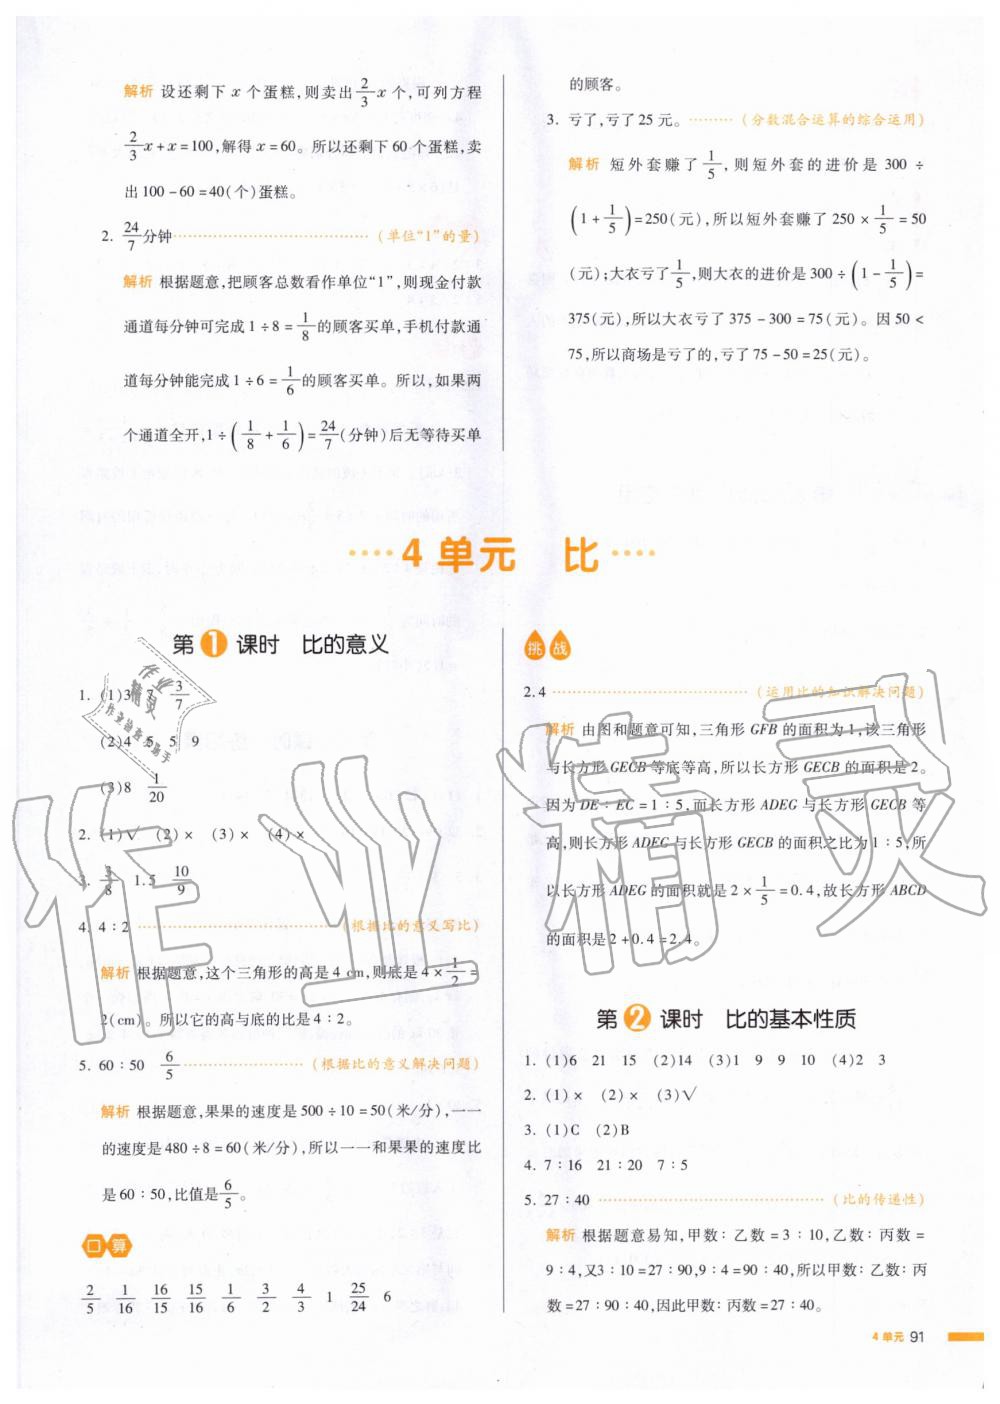 解析 设还剩下 x 个蛋糕,则卖出2/3x 个,可列方程
2/3x+x=100,解得 x=60。所以还剩下 60 个蛋糕,卖
出 100-60=40(个)蛋糕。
2. 24/7分钟 (单位“1”的量)
解析 根据题意,把顾客总数看作单位“1”,则现金付款
通道每分钟可完成 1÷8=1/8的顾客买单,手机付款通
道每分钟能完成 1÷6=1/6的顾客买单。所以,如果两
个通道全开,1÷(1/8+1/6)=24/7(分钟)后无等待买单
的顾客。
3. 亏了,亏了 25 元。(分数混合运算的综合运用)
解析 短外套赚了1/5,则短外套的进价是 300÷
(1+1/5)=250(元),所以短外套赚了 250×1/5=50
(元);大衣亏了1/5,则大衣的进价是 300÷(1-1/5)=
375(元),所以大衣亏了 375-300=75(元)。因 50<
75,所以商场是亏了的,亏了 75-50=25(元)。
4 单元 比
第1课时 比的意义
1. (1)3 7 3/7
(2)4 5 5 9
(3)8 1/20
2. (1)√ (2)× (3)× (4)×
3. 3/8 1.5 10/9
4. 4∶2 (根据比的意义写比)
解析 根据题意,这个三角形的高是 4 cm,则底是 4×1/2=
2(cm)。所以它的高与底的比是 4∶2。
5. 60∶50 6/5 (根据比的意义解决问题)
解析 根据题意,果果的速度是 500÷10=50(米/分),一一
的速度是 480÷8=60(米/分),所以一一和果果的速度比
是 60∶50,比值是6/5。
口算
2/5 1/16 16/15 15/16 1/6 3/2 4/3 1 25/24 6
挑战
2.4 (运用比的知识解决问题)
解析 由图和题意可知,三角形 GFB 的面积为 1,该三角形
与长方形 GECB 等底等高,所以长方形 GECB 的面积是 2。
因为 DE∶EC=1∶5,而长方形 ADEG 与长方形 GECB 等
高,则长方形 ADEG 与长方形 GECB 的面积之比为 1∶5,所
以长方形 ADEG 的面积就是 2×1/5=0.4,故长方形 ABCD
的面积是 2+0.4=2.4。
第2课时 比的基本性质
1. (1)6 21 15 (2)14 (3)1 9 9 10 (4)2 3
2. (1)× (2)× (3)√
3. (1)C (2)B
4. 7∶16 21∶20 7∶5
5. 27∶40 (比的传递性)
解析 根据题意易知,甲数∶乙数=3∶10,乙数∶丙数=
9∶4,又3∶10=27∶90,9∶4=90∶40,所以甲数∶乙数∶丙
数=27∶90∶40,因此甲数∶丙数=27∶40。
4 单元 91
作业精灵
作业精灵